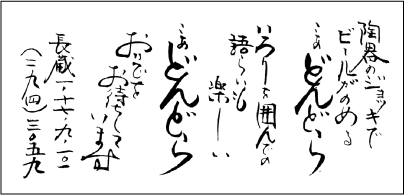 陶器のジョッキで
ビールがのめる
どんどら
いろりを囲んでの
語らいも
楽しい
どんどら
おいでを
お待ちして
います
長蔵一・十七・九・一〇
(二九四)三〇五九